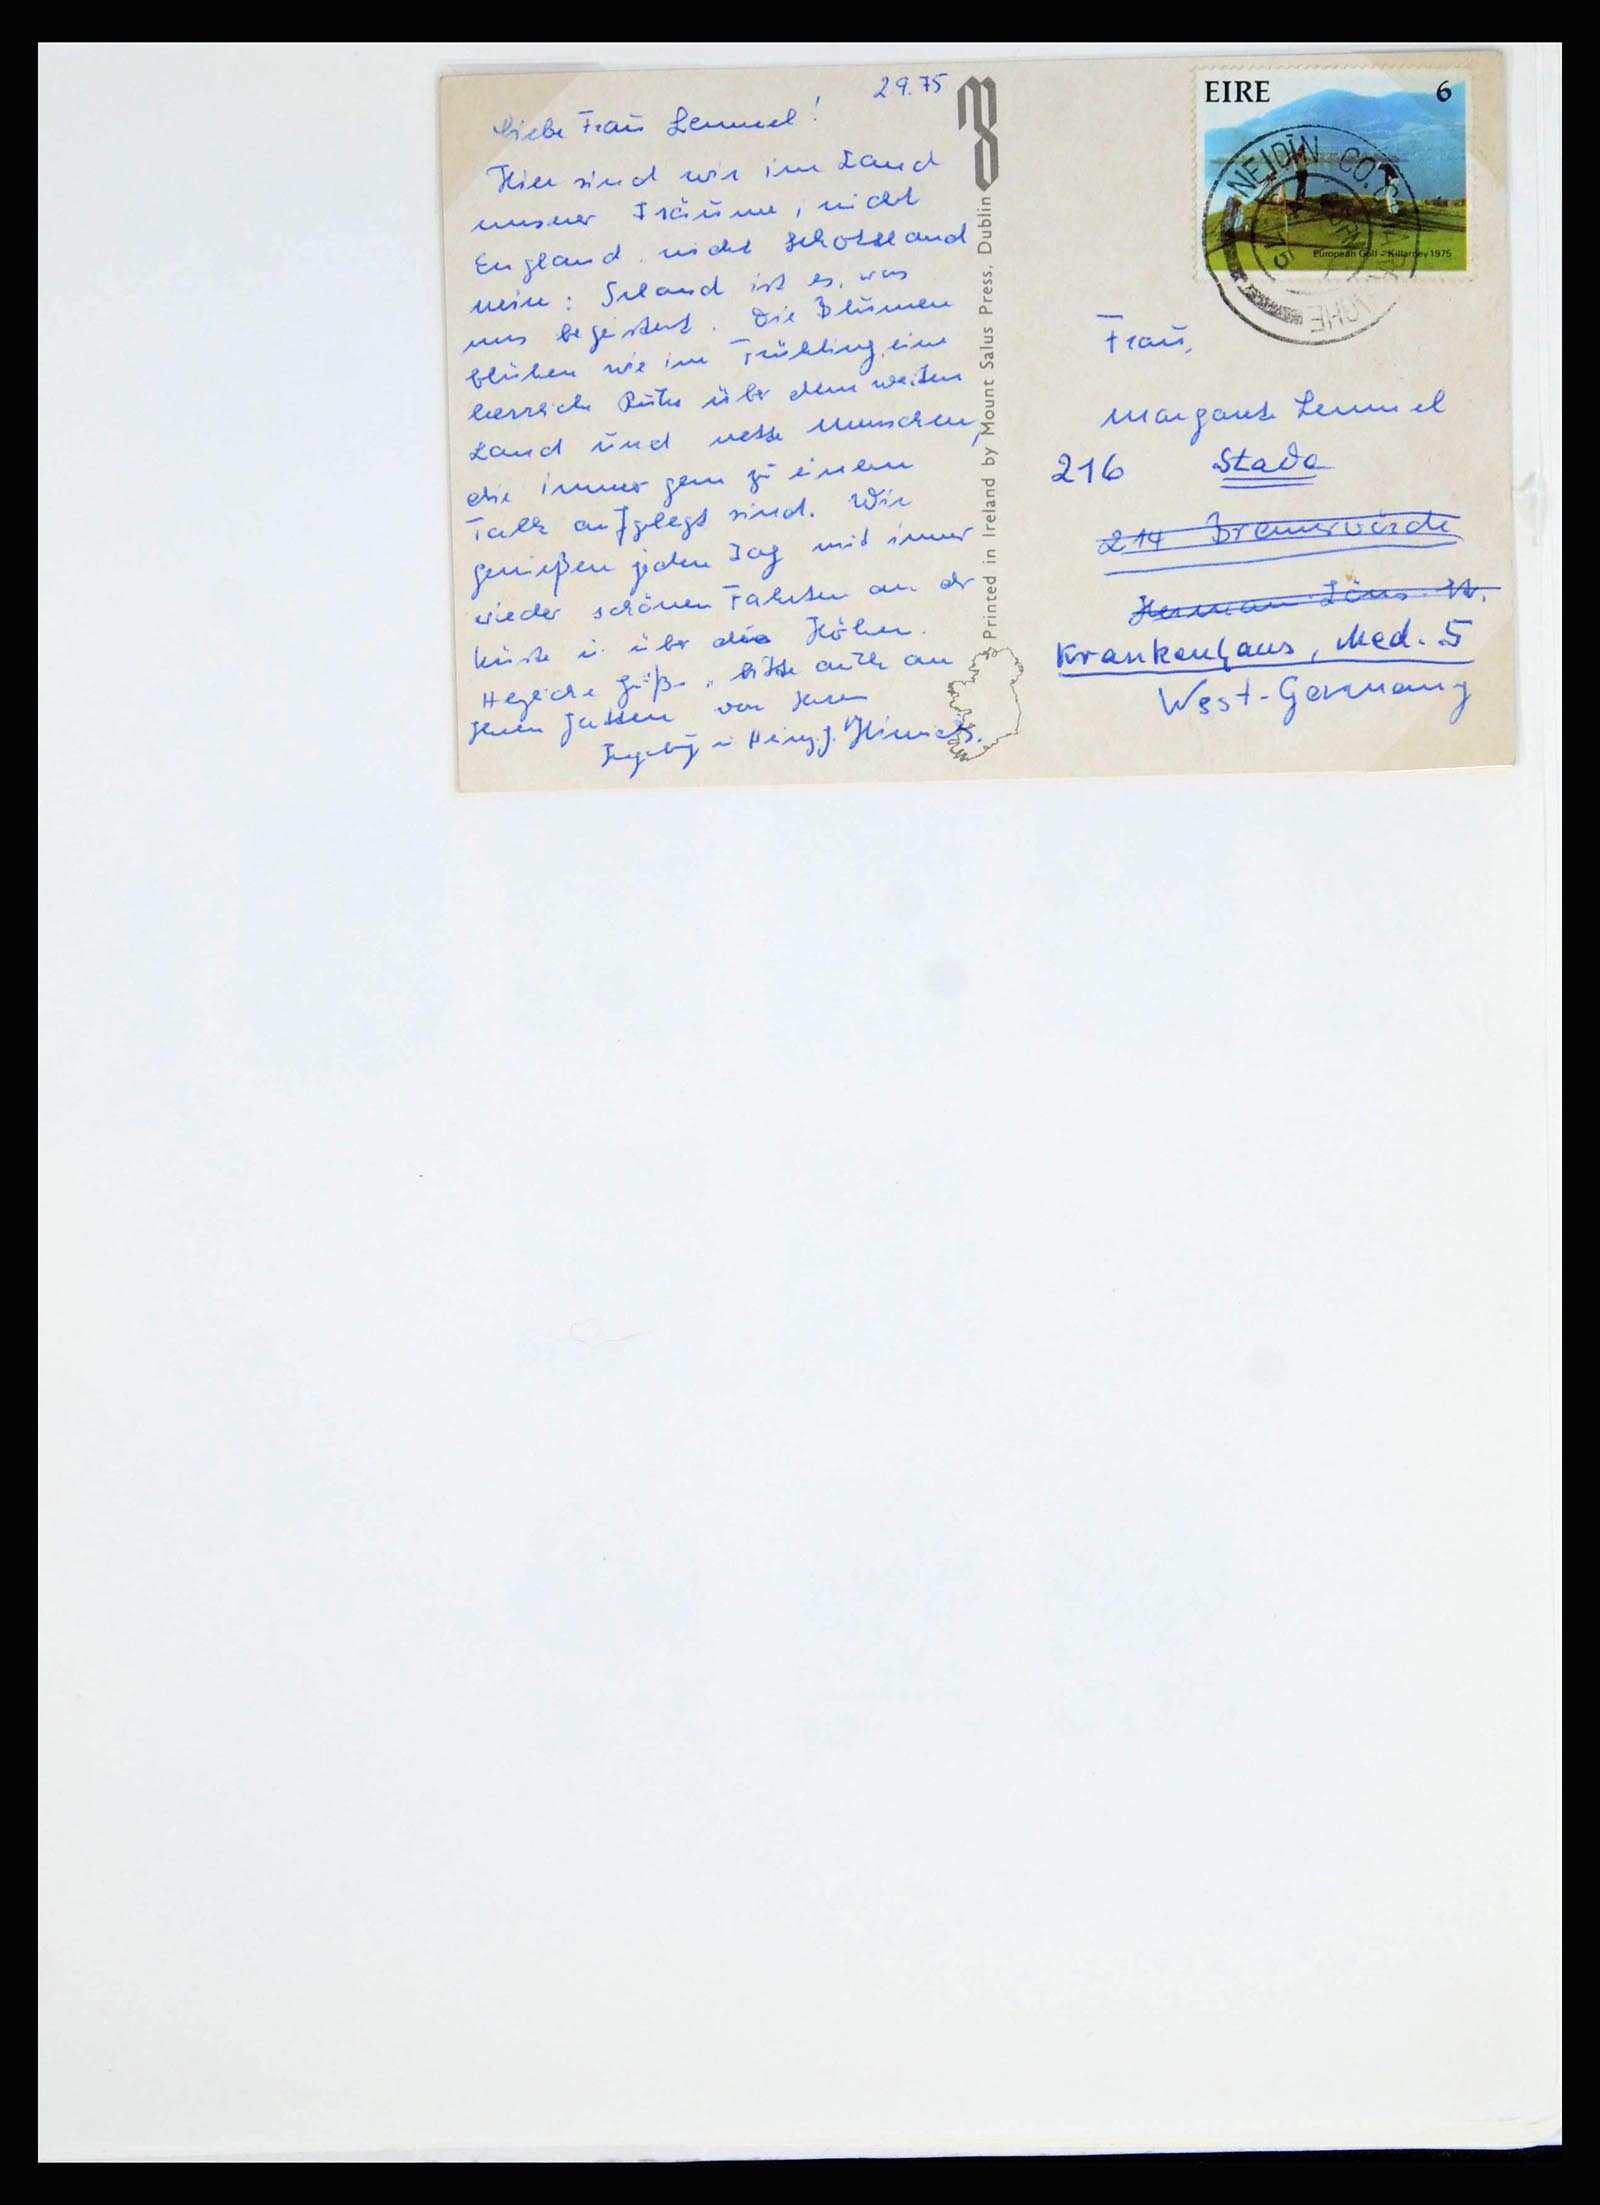 2.9.75
Liebe Frau Lemmel!
Hier sind wir im Land
unserer Träume, nicht
England nicht Schottland
nein: Irland ist es, was
uns begeistert. Die Blumen
blühen wie im Frühling, eine
herrliche Ruhe über dem weiten
Land und nette Menschen,
die immer gern zu einem
Talk aufgelegt sind. Wir
genießen jeden Tag mit immer
wieder schönen Fahrten an der
Küste u. über die Höhen.
Herzliche Grüße, bitte auch an
Ihren Gatten von Ihren
Ingeborg u. Heinz J. Hinrichs.
Printed in Ireland by Mount Salus Press, Dublin
EIRE 6
European Golf - Killarney 1975
NEIDIN CO.
75
Frau,
Margarete Lemmel
216 Stade
214 Bremervörde
Herman Löns St.
Krankenhaus, Med. 5
West-Germany